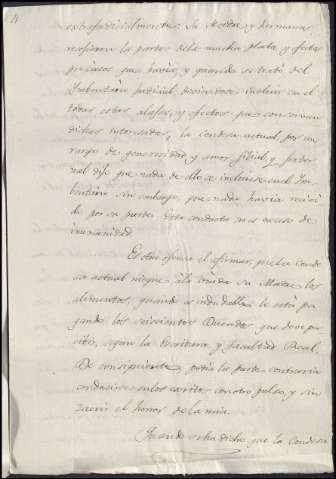 extrajudicialmente: la Madre, y hermanas
recibieron la parte dela mucha plata, y efectos
preciosos que havia, y quando se trató del
Inbentario judicial, deviendose incluir en el
todas estas alajas, y efectos que conservan
dichas interesadas, la condesa actual, por un
rasgo de generosidad, y amor filial, y frater
nal dijo que nada de ello se incluiese en el In
bentario sin embargo, que nada havia recivi
do por su parte. Esta conducta no es acaso de
inumanidad.
Es otra ofensa el afirmar, que la Conde
sa actual niegue á la viuda su Madre los
alimentos, quando es indudable le está pa
gando los seiscientos Ducados, que deve per
civir, segun la Escritura y facultad Real.
De consiguiente, podia la parte contraria
conducirse en los escritos con otro pulso, y sin
zaerir el honor de la mia.
Quando se ha dicho, que la Condesa